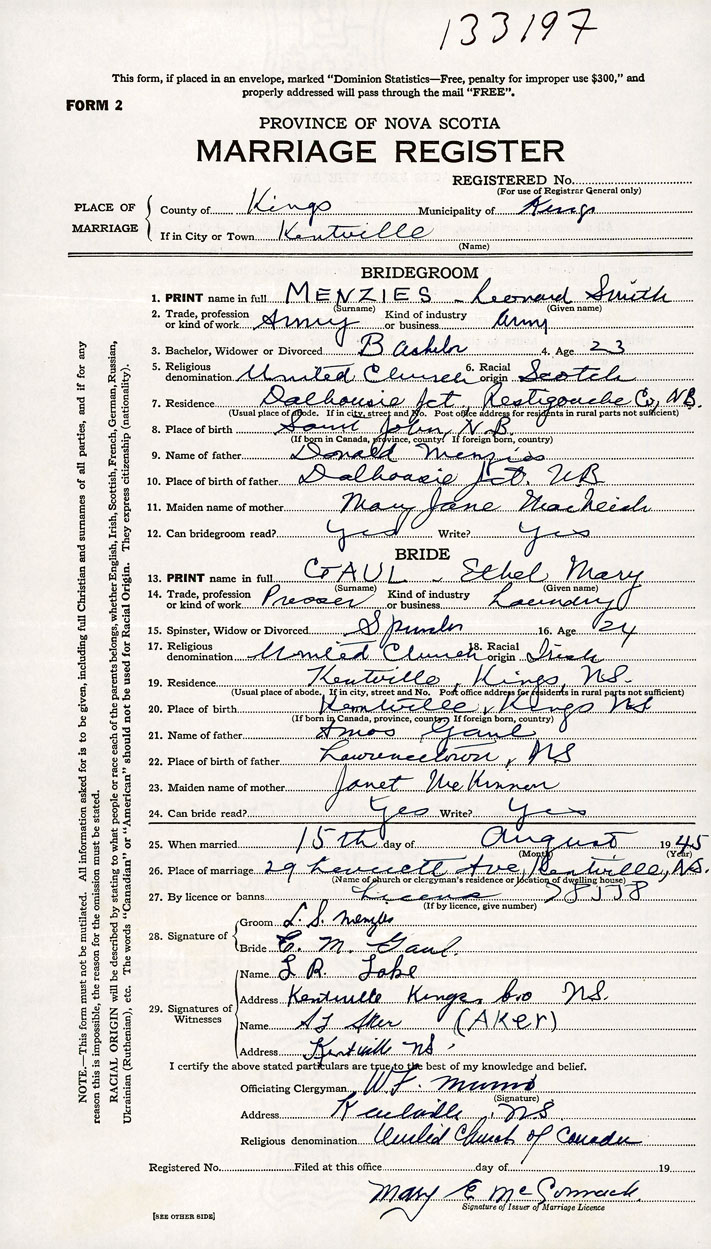 133197
This form, if placed in an envelope, marked "Dominion Statistics—Free, penalty for improper use $300," and
properly addressed will pass through the mail "FREE".
FORM 2
PROVINCE OF NOVA SCOTIA
MARRIAGE REGISTER
REGISTERED No.
(For use of Registrar General only)
PLACE OF MARRIAGE
County of Kings Municipality of Kings
If in City or Town Kentville
(Name)
BRIDEGROOM
1. PRINT name in full MENZIES - Leonard Smith
(Surname) (Given name)
2. Trade, profession or kind of work Army Kind of industry or business Army
3. Bachelor, Widower or Divorced Bachelor 4. Age 23
5. Religious denomination United Church 6. Racial origin Scotch
7. Residence Dalhousie Jct, Restigouche Co, NB.
(Usual place of abode. If in city, street and No. Post office address for residents in rural parts not sufficient)
8. Place of birth Saint John, N.B.
(If born in Canada, province, county. If foreign born, country)
9. Name of father Donald Menzies
10. Place of birth of father Dalhousie Jct. NB
11. Maiden name of mother Mary Jane
12. Can bridegroom read? Yes Write? Yes
BRIDE
13. PRINT name in full GAUL - Ethel Mary
(Surname) (Given name)
14. Trade, profession or kind of work Presser Kind of industry or business Laundry
15. Spinster, Widow or Divorced 16. Age 24
17. Religious denomination United Church 18. Racial origin Irish
19. Residence Kentville, Kings, N.S.
(Usual place of abode. If in city, street and No. Post office address for residents in rural parts not sufficient)
20. Place of birth Kentville, Kings NS
(If born in Canada, province, county. If foreign born, country)
21. Name of father Amos Gaul
22. Place of birth of father Lawrencetown, NS
23. Maiden name of mother Janet McKinnon
24. Can bride read? Yes Write? Yes
25. When married 15th day of August 1945
(Month) (Year)
26. Place of marriage 29 Ave, Kentville, N.S.
(Name of church or clergyman's residence or location of dwelling house)
27. By licence or banns License
(If by licence, give number)
28. Signature of
Groom L. S. Menzies
Bride E. M. Gaul.
29. Signatures of Witnesses
Name L R.
Address Kentville Kings, NS.
Name (AKER)
Address Kentville NS
I certify the above stated particulars are true to the best of my knowledge and belief.
Officiating Clergyman W.F.
(Signature)
Address Kentville, N.S.
Religious denomination United Church of Canada
Registered No. Filed at this office day of 19
Mary E McCormack.
Signature of Issuer of Marriage Licence
[SEE OTHER SIDE]
NOTE.—This form must not be mutilated. All information asked for is to be given, including full Christian and surnames of all parties, and if for any
reason this is impossible, the reason for the omission must be stated.
RACIAL ORIGIN will be described by stating to what people or race each of the parents belongs, whether English, Irish, Scottish, French, German, Russian,
Ukrainian (Ruthenian), etc. The words "Canadian" or "American" should not be used for Racial Origin. They express citizenship (nationality).